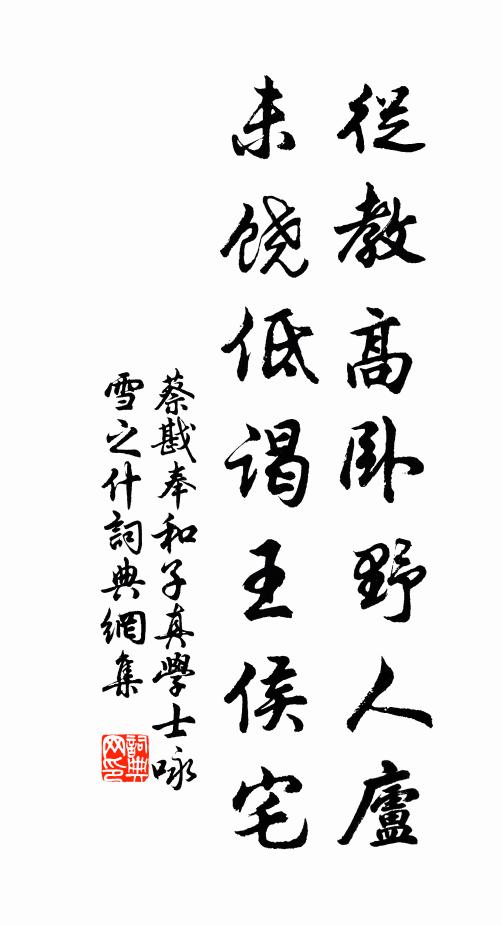 從教高臥野人廬
未饒低謁王侯宅
蔡戡奉和子真學士咏
雪之什詞典網集
詞典网印